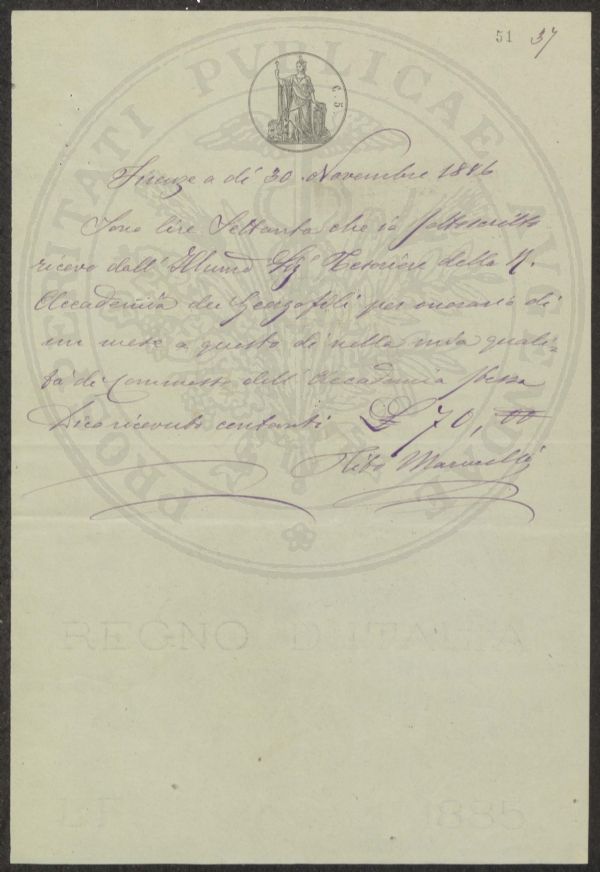 51 37
PROSPERITATI PVBLICAE AVGENDAE
C. 5
Firenze a dì 30 Novembre 1886
Sono lire Settanta che io sottoscritto
ricevo dall' Illmo Sigr Tesoriere della R.
Accademia dei Georgofili per onorario di
un mese a questo dì nella mia quali-
tà di Commesso dell' Accademia stessa
Dico ricevuto contanti £ 70, 00
Tito
REGNO D'ITALIA
1885